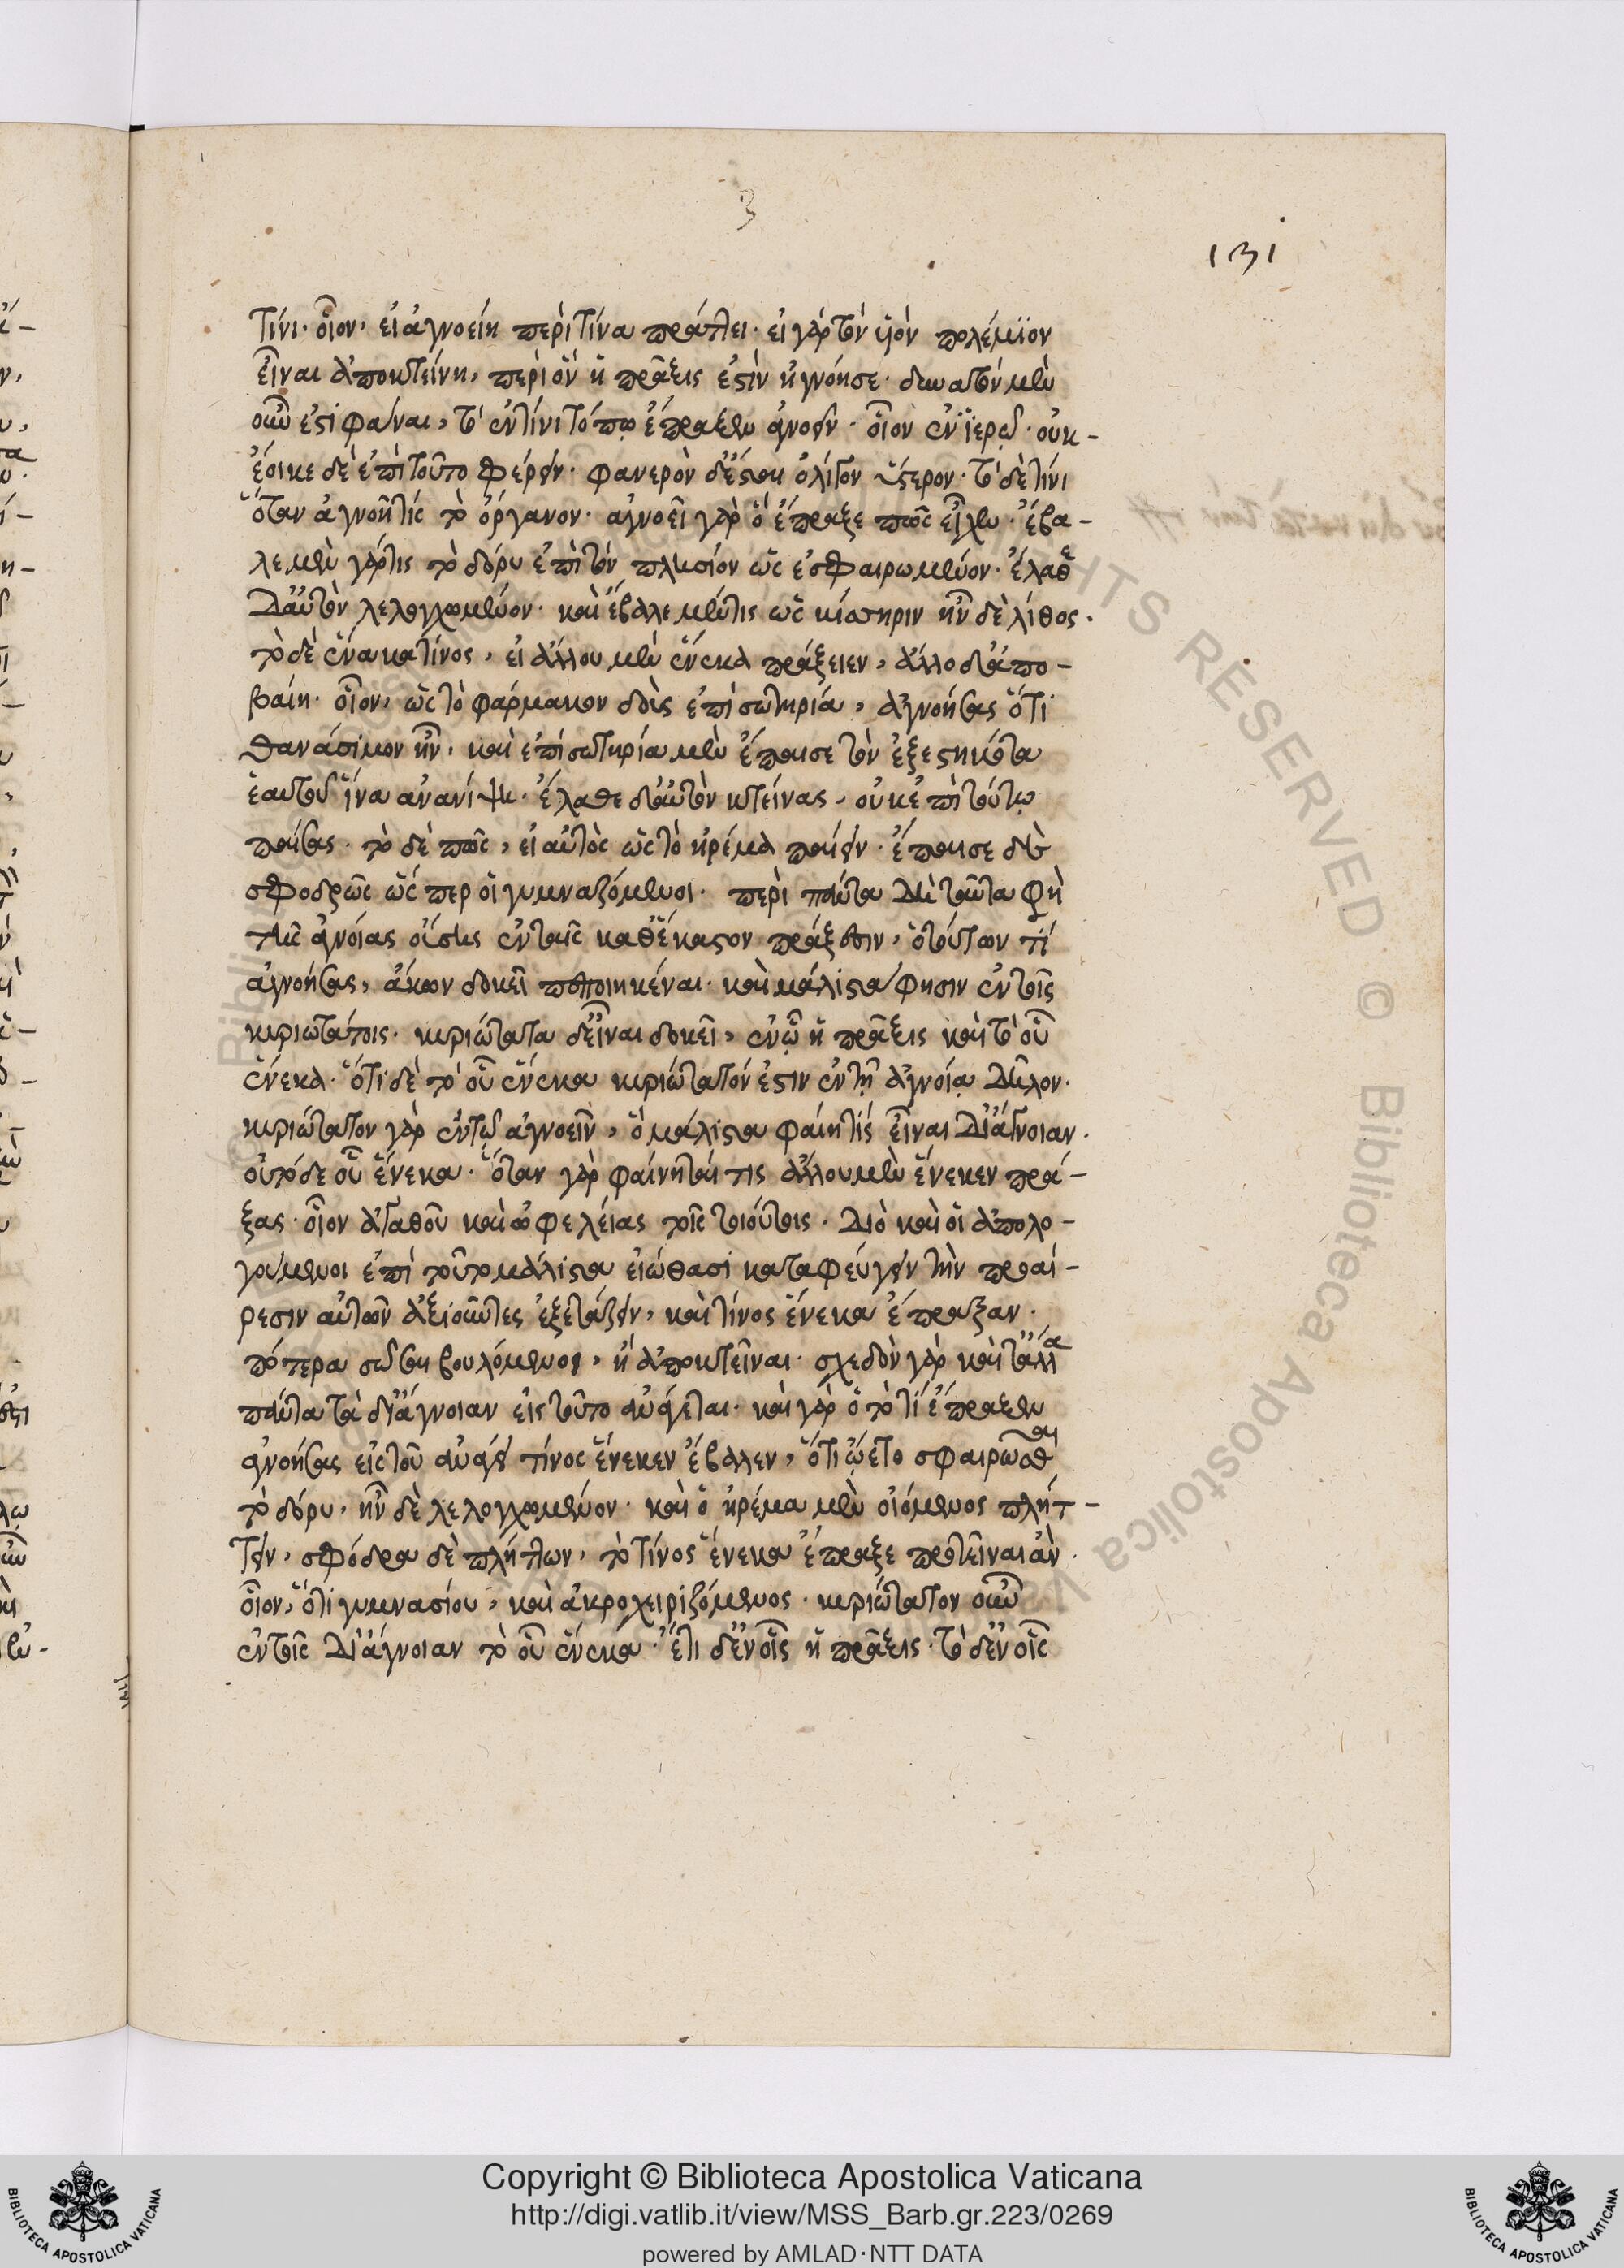 3
131
τίνι· οἷον, εἰ ἀγνοείη περὶ τίνα πράττει· εἰ γὰρ τὸν υἱὸν πολέμϊον
εἶναι ἀποκτείνη, περὶ ὃν ἡ πρᾶξις ἐστὶν ἠγνόησε· δυνατὸν μὲν
οὖν ἐστὶ φάναι, τὸ ἐν τίνι τόπῳ ἔπραξεν ἀγνοεῖν· οἷον ἐν ϊερῷ· οὐκ-
έοικε δὲ ἐπὶ τοῦτο φέρειν· φανερὸν δ' ἔσται ὀλίγον ὕστερον· τὸ δὲ τίνι
ὅταν ἀγνοῆ τίς τὸ ὄργανον· ἀγνοεῖ γὰρ ὃ ἔπραξε πῶς εἶχεν· ἔβα-
λε μὲν γάρ τις τὸ δόρυ ἐπὶ τὸν πλησίον ὡς ἐσφαιρωμένον· ἔλαθε
δ' αὐτὸν λελογχωμένον· καὶ ἔβαλε μέν τις ὡς κίσσηριν ἦν δὲ λίθος·
τὸ δὲ ἕνεκα τίνος, εἰ ἄλλου μὲν ἕνεκα πράξειεν, ἄλλο δ' ἀπο-
βαίη· οἷον, ὡς τὸ φάρμακον δοὺς ἐπὶ σωτηρία, ἀγνοήσας ὅτι
θανάσιμον ἦν, καὶ ἐπὶ σωτηρία μὲν ἔπαισε τὸν ἐξεστηκότα
ἑαυτοῦ ἵνα ἀνανήψη· ἔλαθε δ' αὐτὸν κτείνας, οὐκ ἐπὶ τούτω
παίσας· τὸ δὲ πῶς, εἰ αὐτὸς ὡς τὸ ἠρέμα παίειν· ἔπαισε δὲ
σφοδρῶς ὥς περ οἱ γυμναζόμενοι· περὶ πάντα δὴ ταῦτα φὴ
τῆς ἀγνοίας οὔσης ἐν ταῖς καθέκαστον πράξεσιν, ὁ τούτων τί
ἀγνοήσας, ἄκων δοκεῖ πεποιηκέναι· καὶ μάλιστα φησιν ἐν τοῖς
κυριωτάτοις· κυριώτατα δ' εἶναι δοκεῖ, ἐν ᾧ ἡ πρᾶξις καὶ τὸ οὗ
ἕνεκα· ὅτι δὲ τὸ οὗ ἕνεκα κυριώτατόν ἐστιν ἐν τῇ ἀγνοίᾳ δῆλον·
κυριώτατον γὰρ ἐν τῷ ἀγνοεῖν, ὃ μάλιστα φαίη τίς εἶναι δι' ἄγνοιαν·
οὐ τόδε οὗ ἕνεκα· ὅταν γὰρ φαίνηταί τις ἄλλου μὲν ἕνεκεν πρά-
ξας· οἷον ἀγαθοῦ καὶ ὠφελείας τοῖς τοιούτοις· διὸ καὶ οἱ ἀπολο-
γούμενοι ἐπὶ τοῦτο μάλιστα εἰώθασι καταφεύγειν τὴν προαί-
ρεσιν αὐτῶν ἀξιοῦντες ἐξετάζειν, καὶ τίνος ἕνεκα ἔπραξαν·
πότερα σῶσαι βουλόμενοι, ἢ ἀποκτεῖναι· σχεδὸν γὰρ καὶ τἄλλα
πάντα τὰ δι' ἄγνοιαν εἰς τοῦτο ἀνάγεται· καὶ γὰρ ὁ τὸ τί ἔπραξεν
ἀγνοήσας εἰς τοῦ ἀνάγει τίνος ἕνεκεν ἔβαλεν, ὅτι ᾤετο σφαιρῶσθαι
τὸ δόρυ, ἦν δὲ λελογχωμένον· καὶ ὁ ἠρέμα μὲν οἰόμενος πλήτ-
τειν, σφόδρα δὲ πλήττων, τὸ τίνος ἕνεκα ἔπραξε προτεῖναι ἂν·
οἷον, ὅτι γυμνασίου, καὶ ἀκροχειριζόμενος· κυριώτατον οὖν
ἐν τοῖς δι' ἄγνοιαν τὸ οὗ ἕνεκα· ἔτι δ' ἐν οἷς ἡ πρᾶξις· τὸ δ' ἐν οἷς
Copyright © Biblioteca Apostolica Vaticana
http://digi.vatlib.it/view/MSS_Barb.gr.223/0269
powered by AMLAD·NTT DATA